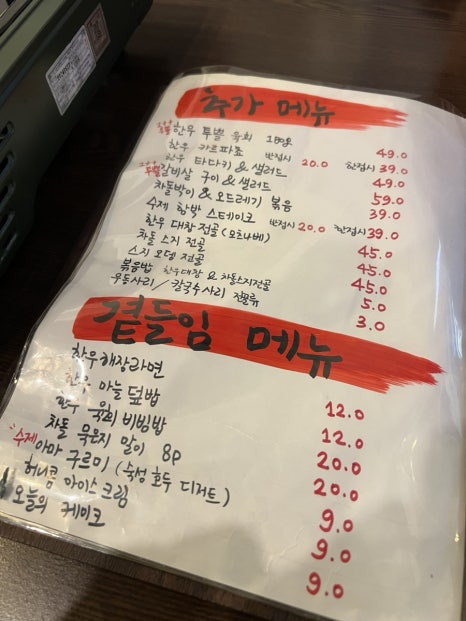 추가 메뉴
한우 특별 육회 180g 49.0
한우 카르파쵸 반접시 20.0 한접시 39.0
한우 타다키 & 샐러드 49.0
갈비살 구이 & 샐러드 59.0
차돌박이 & 오드레기 볶음 39.0
수제 함박 스테이크 반접시 20.0 한접시 39.0
한우 대창 전골 (모츠나베) 45.0
차돌 스지 전골 45.0
스지 오뎅 전골 45.0
볶음밥 한우대창 & 차돌스지전골 5.0
우동사리 / 칼국수사리 전골류 3.0
곁들임 메뉴
한우해장라면 12.0
한우 마늘 덮밥 12.0
한우 육회 비빔밥 20.0
차돌 묵은지 말이 8p 20.0
수제 아마 구르미 (숙성 호두 디저트) 9.0
허니콤 아이스크림 9.0
오늘의 케이크 9.0